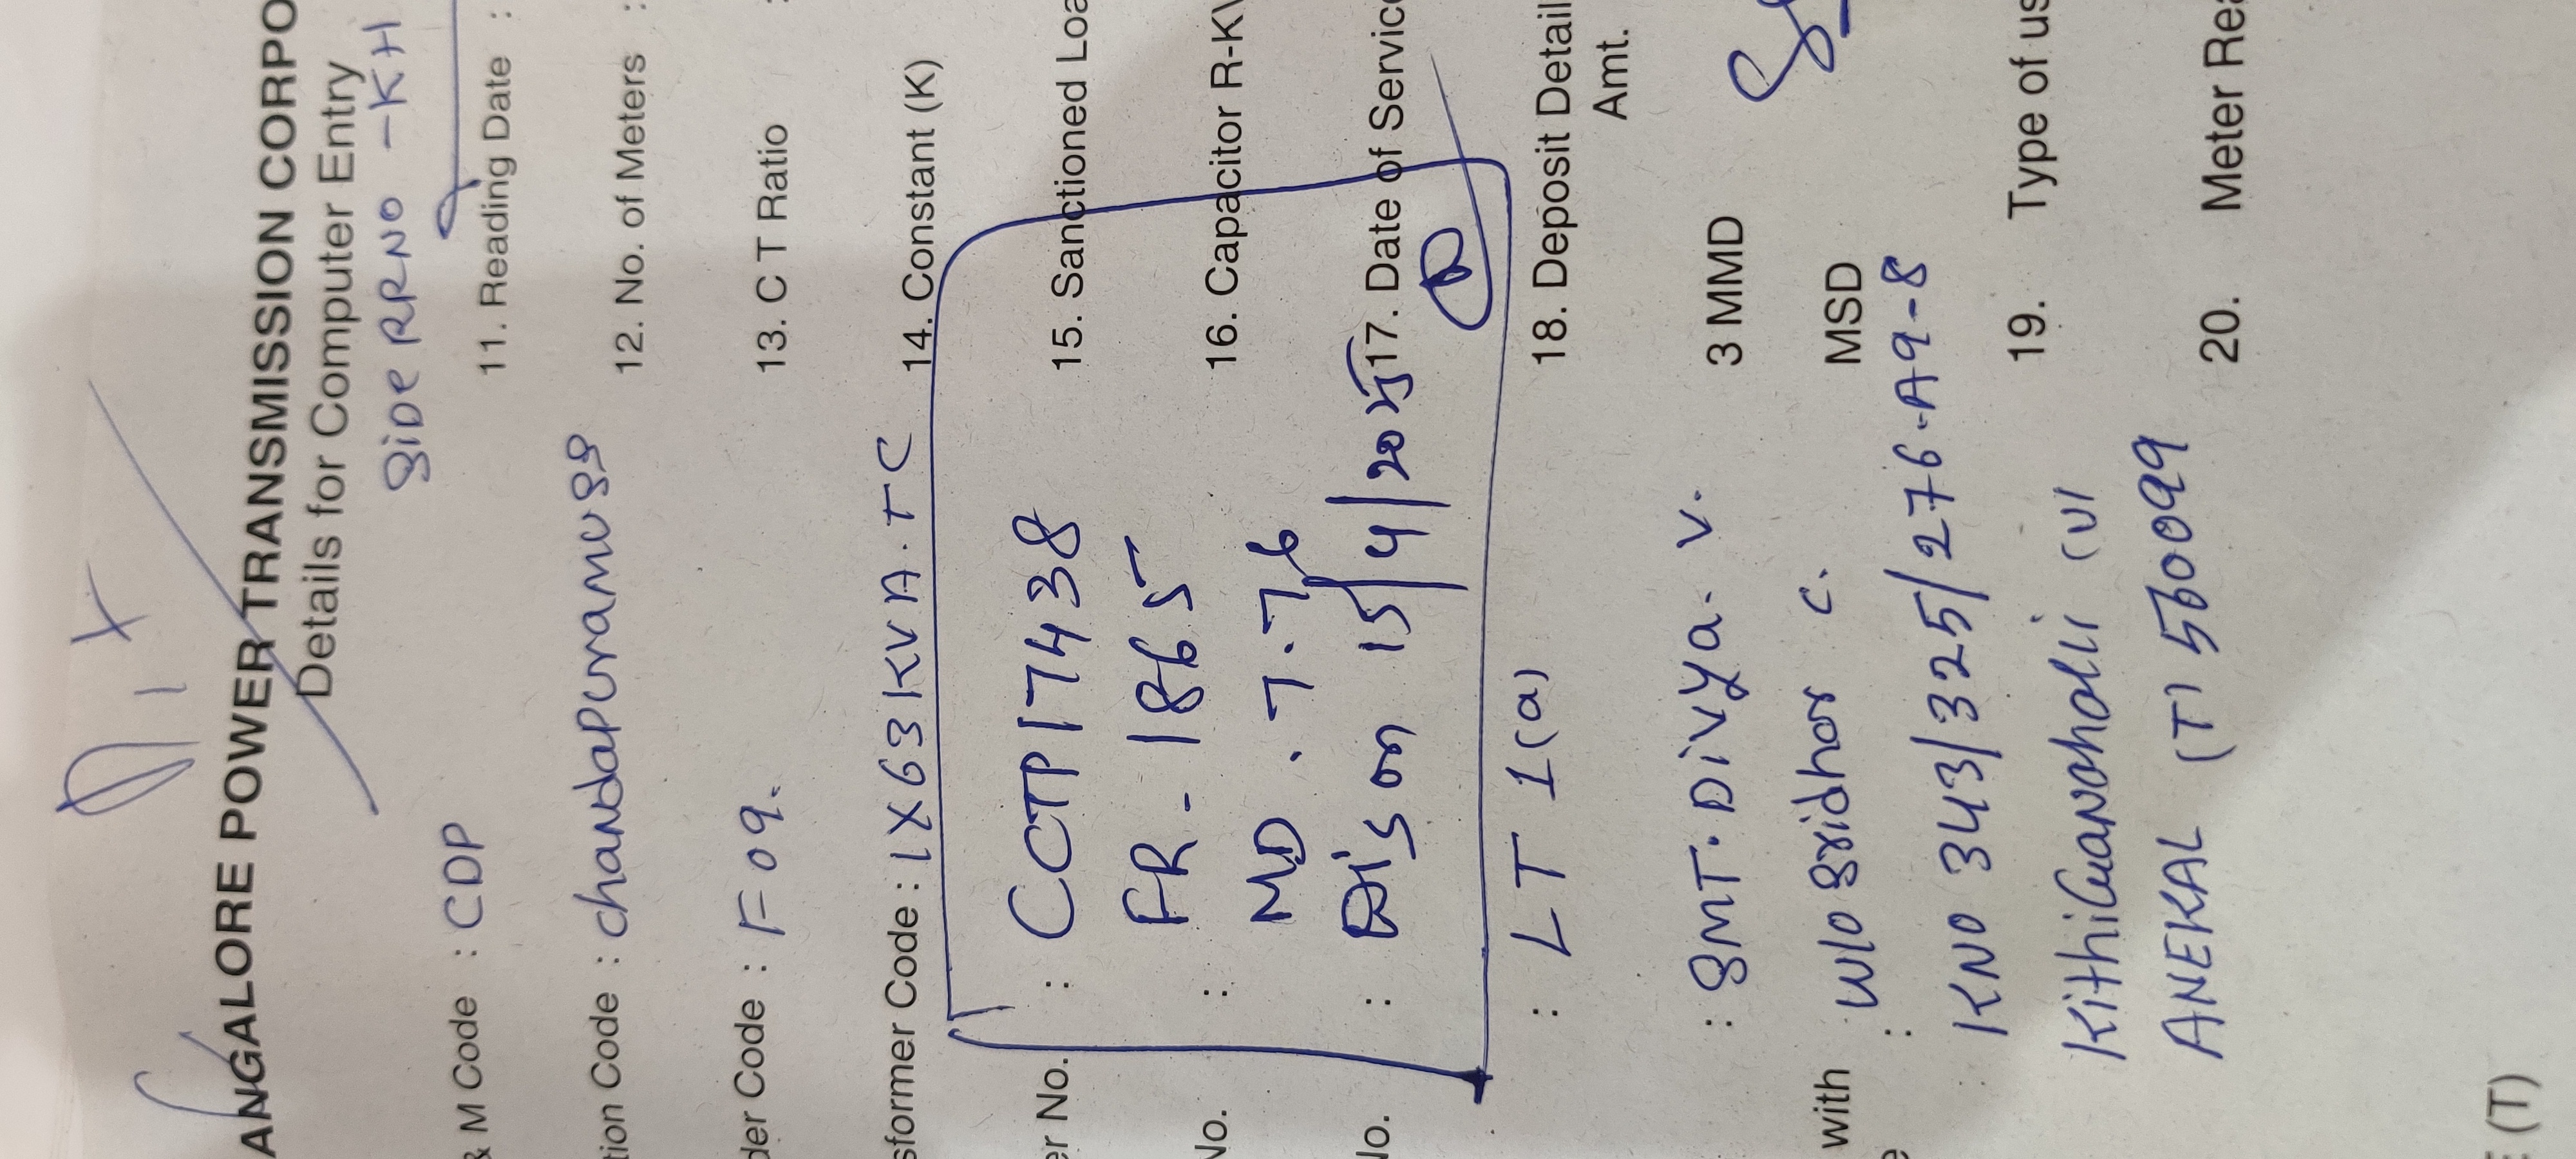 ANGALORE POWER TRANSMISSION CORPO
Details for Computer Entry
SiDe RRNO -KH
& M Code : CDP 11. Reading Date :
tion Code : chandapurramuss 12. No. of Meters :
der Code : F 09. 13. C T Ratio :
sformer Code : 1X63KVA.TC 14. Constant (K)
er No. : CCTP17438 15. Sanctioned Loa
FR - 1865
No. : 16. Capacitor R-KV
MD . 7.76
No. : Dis on 15/4/2025 17. Date of Service
: LT 1(a) 18. Deposit Detail
Amt.
: SMT. Divya. V. 3 MMD
with W/o Sridhar C. MSD
: KNO 343/325/276-A9-8
Kithiganahalli (V) 19. Type of us
ANEKAL (T) 560099 20. Meter Rea
(T)